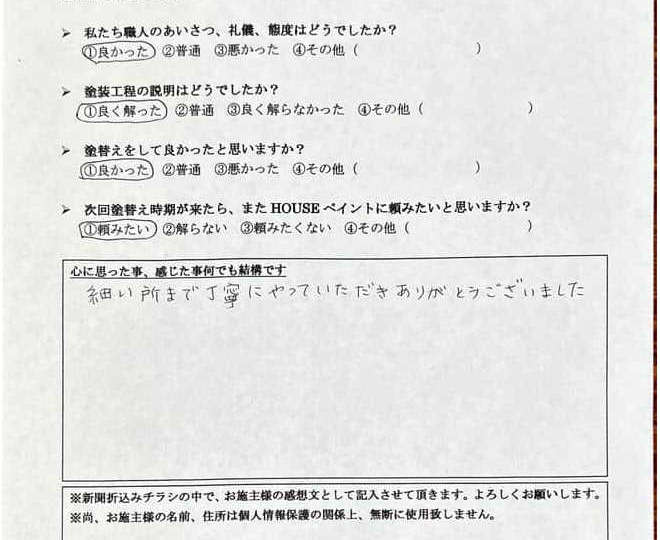 ➢ 私たち職人のあいさつ、礼儀、態度はどうでしたか？
①良かった ②普通 ③悪かった ④その他（ ）
➢ 塗装工程の説明はどうでしたか？
①良く解った ②普通 ③良く解らなかった ④その他（ ）
➢ 塗替えをして良かったと思いますか？
①良かった ②普通 ③悪かった ④その他（ ）
➢ 次回塗替え時期が来たら、また HOUSE ペイントに頼みたいと思いますか？
①頼みたい ②解らない ③頼みたくない ④その他（ ）
心に思った事、感じた事何でも結構です
細い所まで丁寧にやっていただきありがとうございました
※新聞折込みチラシの中で、お施主様の感想文として記入させて頂きます。よろしくお願いします。
※尚、お施主様の名前、住所は個人情報保護の関係上、無断に使用致しません。